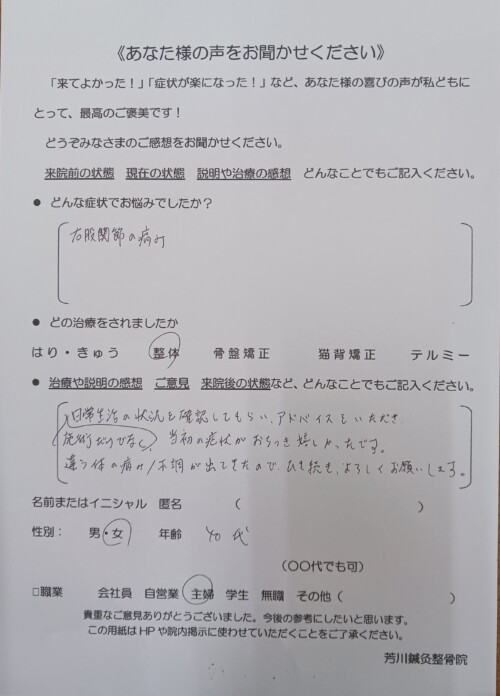 《あなた様の声をお聞かせください》
「来てよかった！」「症状が楽になった！」など、あなた様の喜びの声が私どもに
とって、最高のご褒美です！
どうぞみなさまのご感想をお聞かせください。
来院前の状態　現在の状態　説明や治療の感想　どんなことでもご記入ください。
● どんな症状でお悩みでしたか？
右股関節の痛み
● どの治療をされましたか
はり・きゅう　整体　骨盤矯正　猫背矯正　テルミー
● 治療や説明の感想　ご意見　来院後の状態など、どんなことでもご記入ください。
日常生活の状況を確認してもらい、アドバイスをいただき
施術だけでなく、当初の症状がおちつき嬉しかったです。
違う体の痛み/不調が出てきたので、ひき続き、よろしくお願いします。
名前またはイニシャル　匿名　（　　　　　　）
性別：　男・女　年齢　40代
（〇〇代でも可）
□職業　会社員　自営業　主婦　学生　無職　その他（　　　　　　）
貴重なご意見ありがとうございました。今後の参考にしたいと思います。
この用紙はHPや院内掲示に使わせていただくことをご了承ください。
芳川鍼灸整骨院